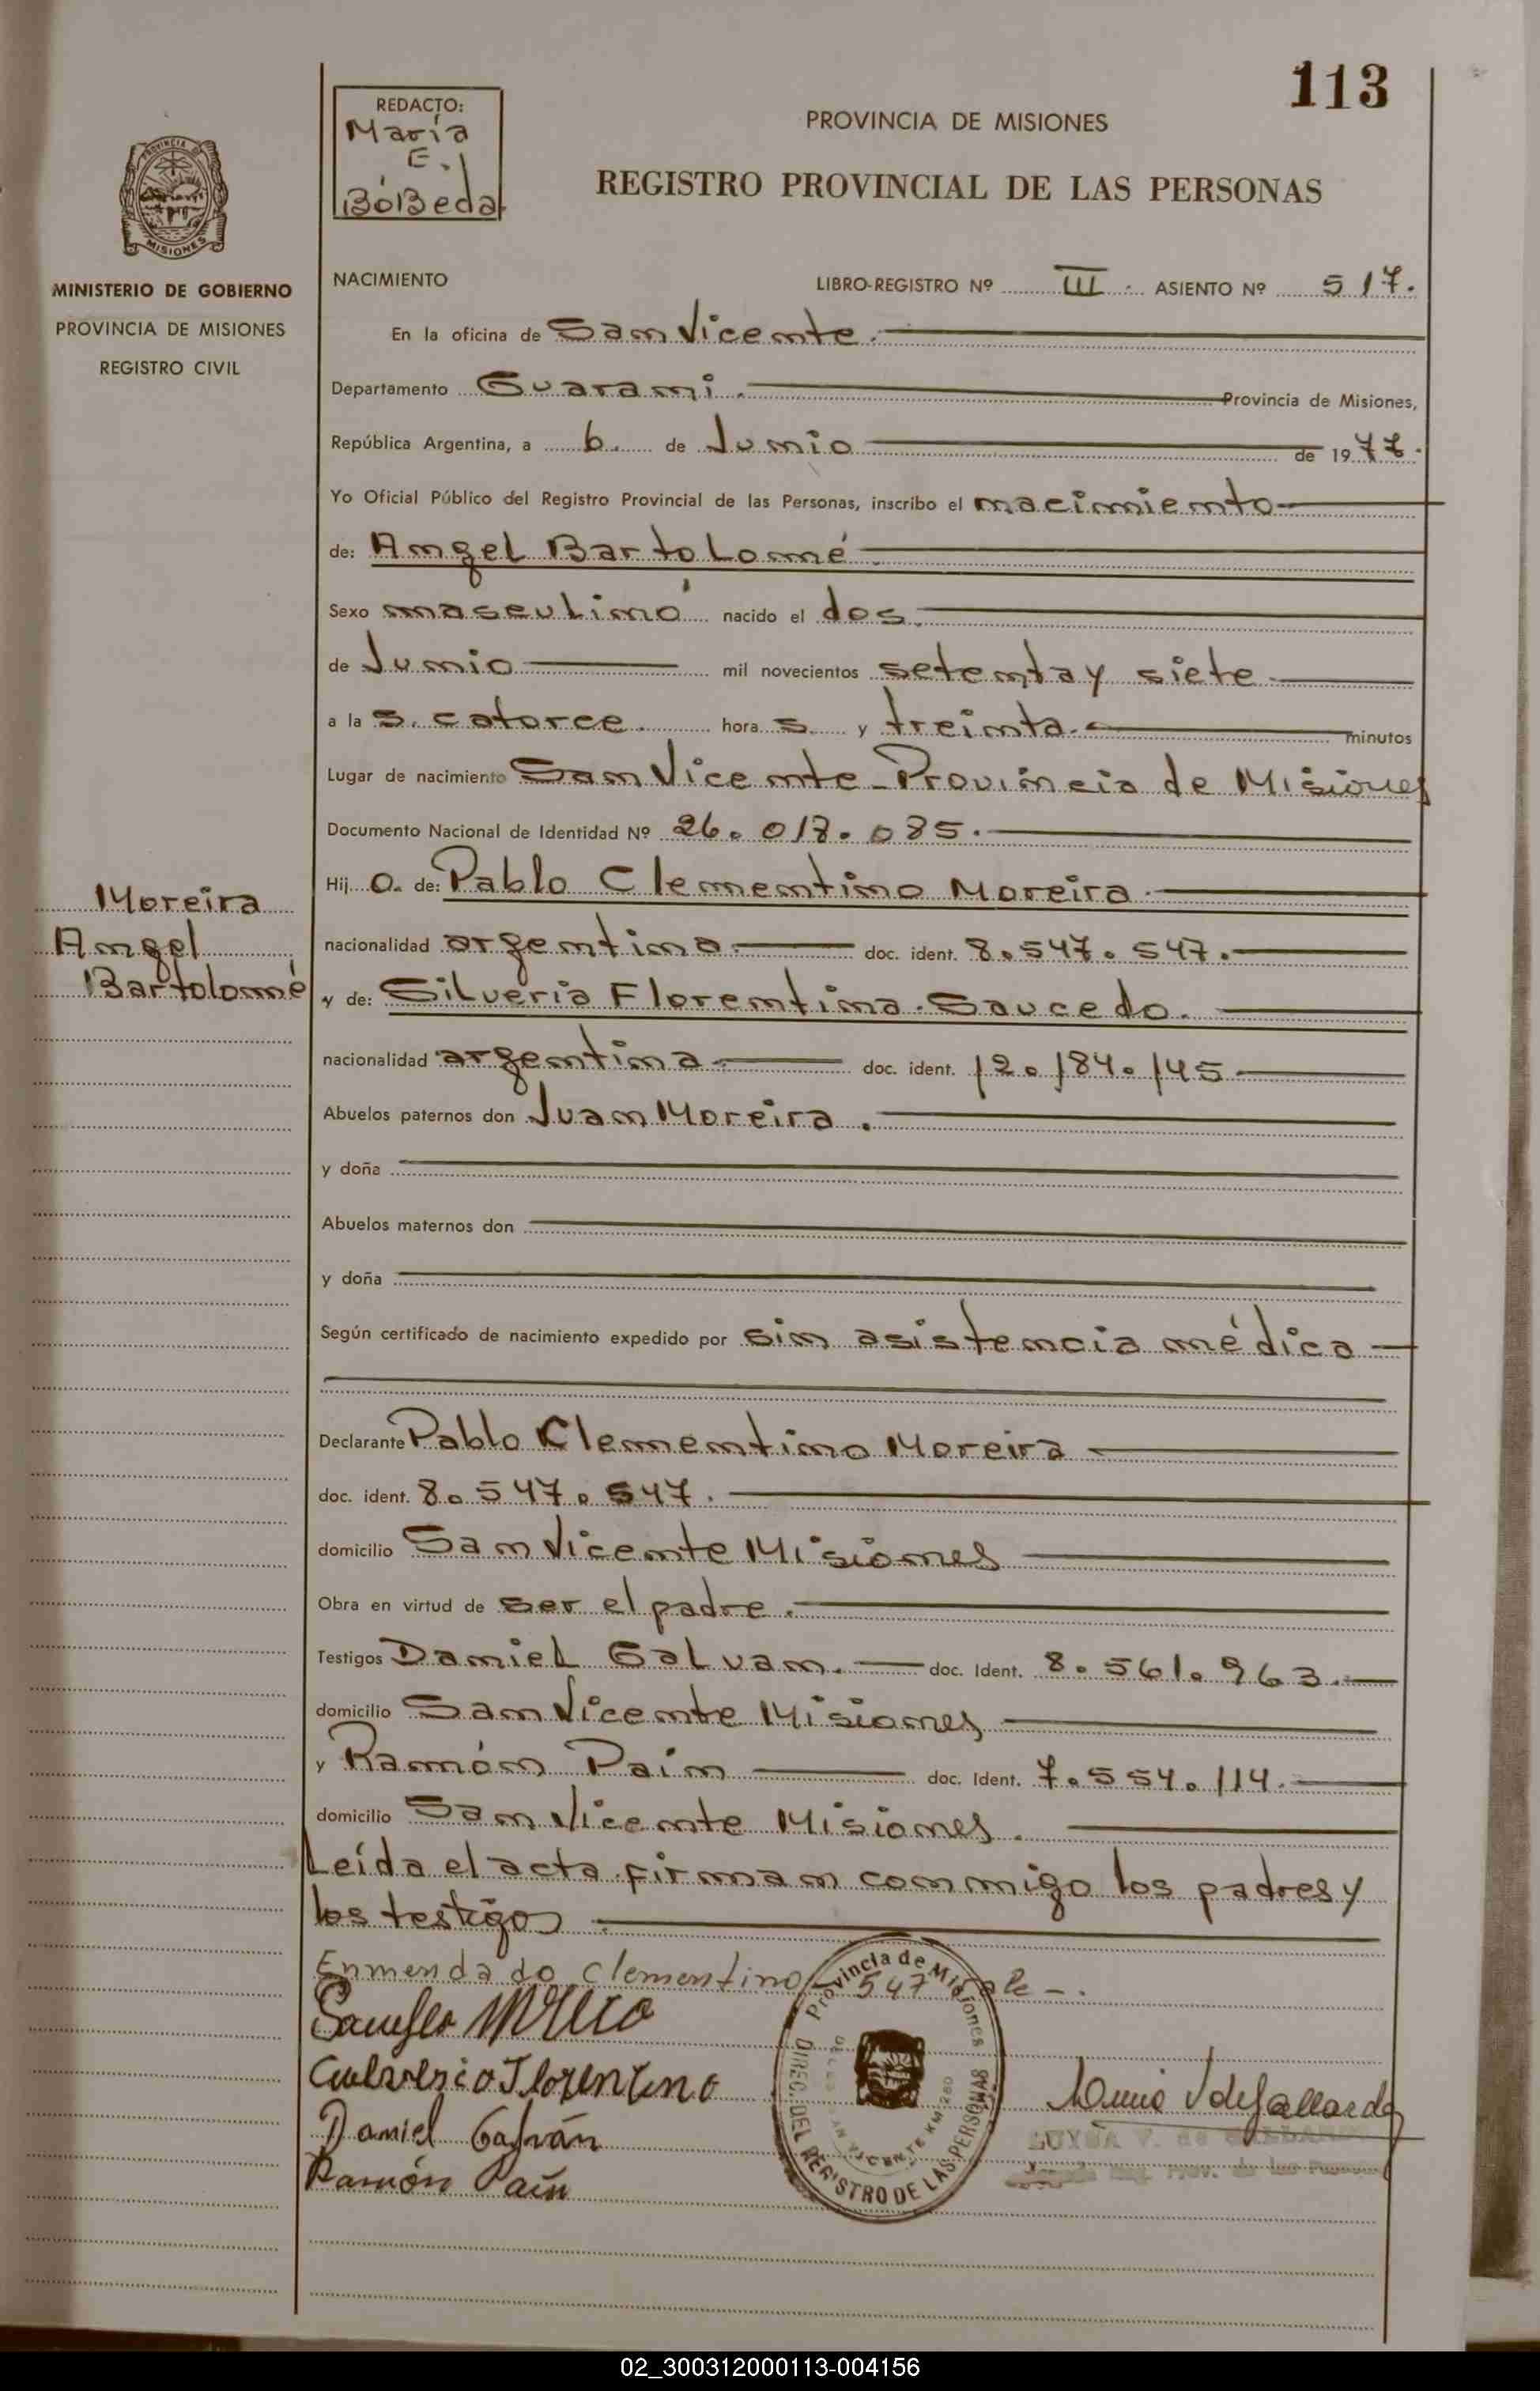 113
REDACTO:
María
E.
BóBeda
PROVINCIA DE MISIONES
REGISTRO PROVINCIAL DE LAS PERSONAS
PROVINCIA DE
MISIONES
MINISTERIO DE GOBIERNO
PROVINCIA DE MISIONES
REGISTRO CIVIL
NACIMIENTO LIBRO-REGISTRO Nº III. ASIENTO Nº 517.
En la oficina de San Vicente.
Departamento Guarani. Provincia de Misiones,
República Argentina, a 6. de Junio de 1977.
Yo Oficial Público del Registro Provincial de las Personas, inscribo el nacimiento
de: Angel Bartolomé
Sexo masculino nacido el dos.
de Junio mil novecientos setenta y siete
a la s. catorce. hora s. y treinta. minutos
Lugar de nacimiento San Vicente - Provincia de Misiones
Documento Nacional de Identidad Nº 26.018.085.
Hij o. de: Pablo Clementino Moreira.
Moreira
Angel
Bartolomé
nacionalidad argentina. doc. ident. 8.547.547.
y de: Silveria Florentina Saucedo.
nacionalidad argentina. doc. ident. 12.184.145
Abuelos paternos don Juan Moreira.
y doña
Abuelos maternos don
y doña
Según certificado de nacimiento expedido por sin asistencia médica
Declarante Pablo Clementino Moreira
doc. ident. 8.547.547.
domicilio San Vicente Misiones
Obra en virtud de ser el padre.
Testigos Daniel Galvan. doc. Ident. 8.561.963.
domicilio San Vicente Misiones
y Ramón Pain doc. Ident. 7.554.114.
domicilio San Vicente Misiones.
Leída el acta firman conmigo los padres y
los testigos.
Enmendado Clementino - 547 vale -.
Florentina
Daniel Galván
Ramón Pain
Provincia de Misiones
DIREC. DEL REGISTRO DE LAS PERSONAS
SAN VICENTE KM 280
LUYSA V. de GALLARDO
02_300312000113-004156